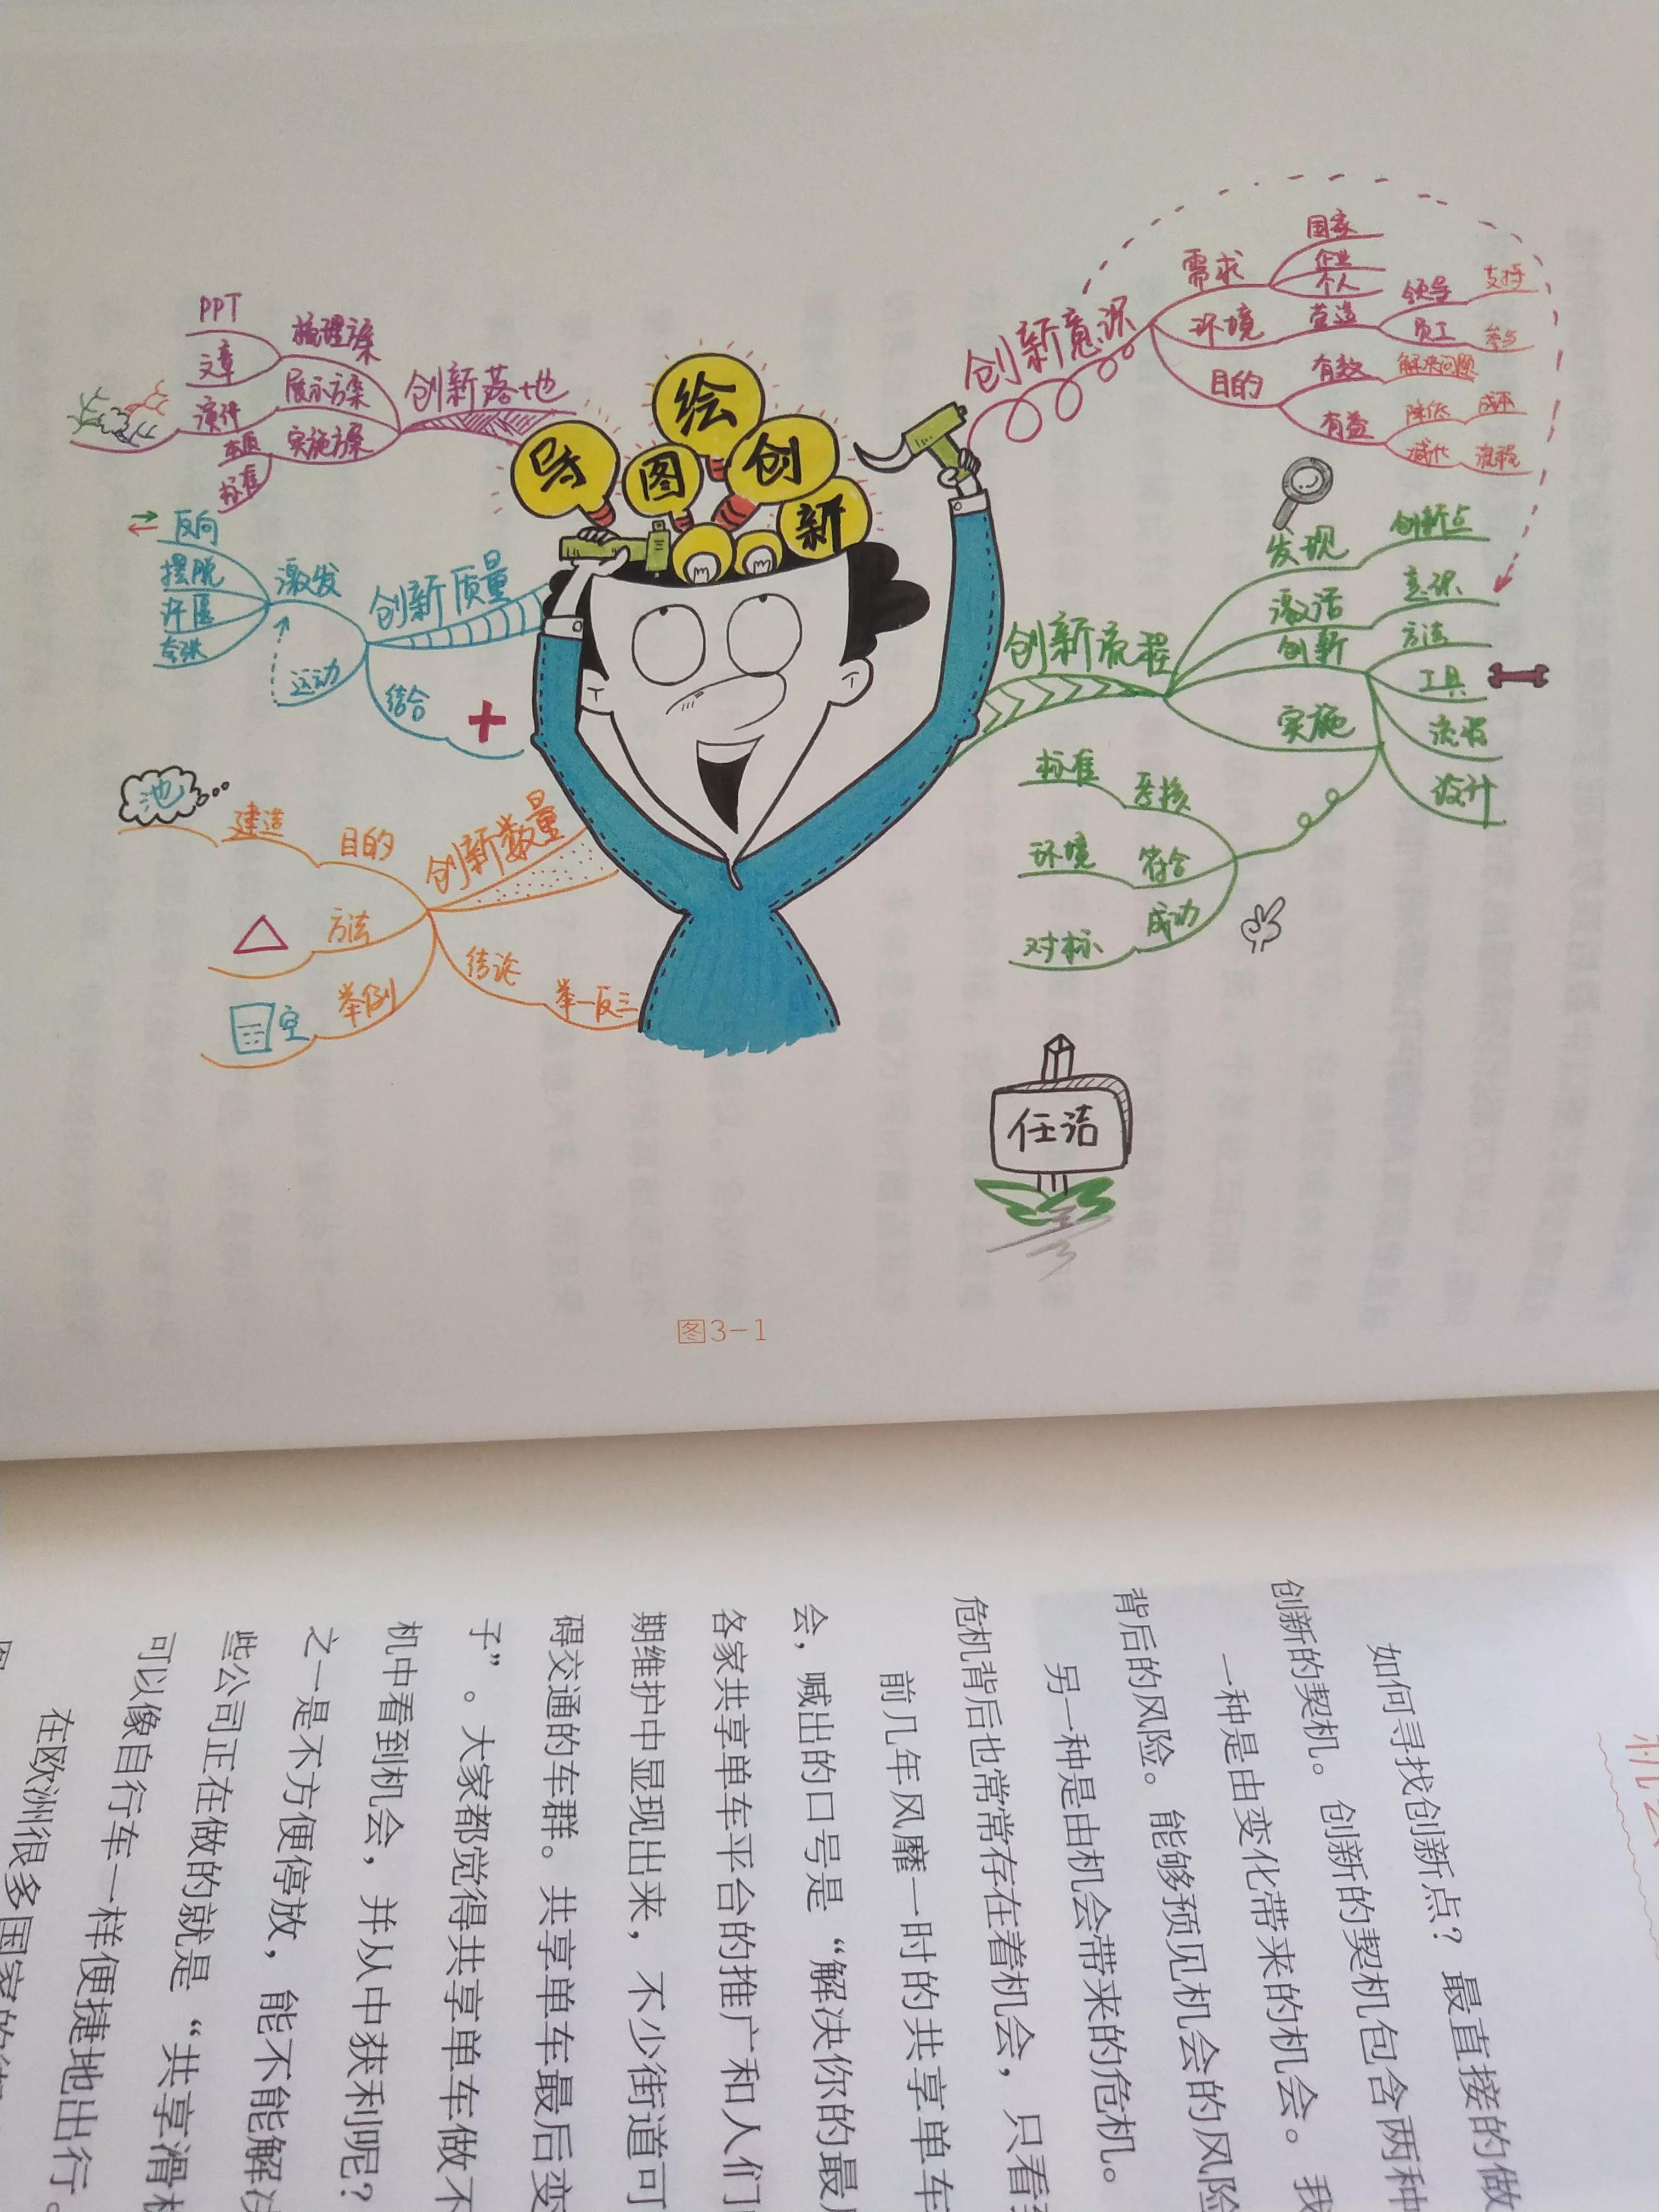 导
绘
图
创
新
创新意识
需求
国家
企业
个人
环境
营造
领导
支持
员工
参与
目的
有效
解决问题
有益
降低
成本
减化
流程
创新流程
发现
创新点
激活
意识
创新
方法
工具
流程
设计
实施
考核
标准
符合
环境
成功
对标
创新数量
目的
建造
池
方法
举例
空
结论
举一反三
创新质量
激发
反向
摆脱
夸张
运动
结合
创新落地
梳理方案
PPT
文章
展示方案
演件
实施方案
本质
标准
任洁
图3-1
机会
如何寻找创新点？最直接的做
创新的契机。创新的契机包含两种
一种是由变化带来的机会。我
背后的风险。能够预见机会的风险
另一种是由机会带来的危机。
危机背后也常常存在着机会，只看
前几年风靡一时的共享单车
会，喊出的口号是“解决你的最
各家共享单车平台的推广和人们
期维护中显现出来，不少街道可
碍交通的车群。共享单车最后变
子”。大家都觉得共享单车做不
机中看到机会，并从中获利呢？
之一是不方便停放，能不能解决
些公司正在做的就是“共享滑板
可以像自行车一样便捷地出行。
在欧洲很多国家的街